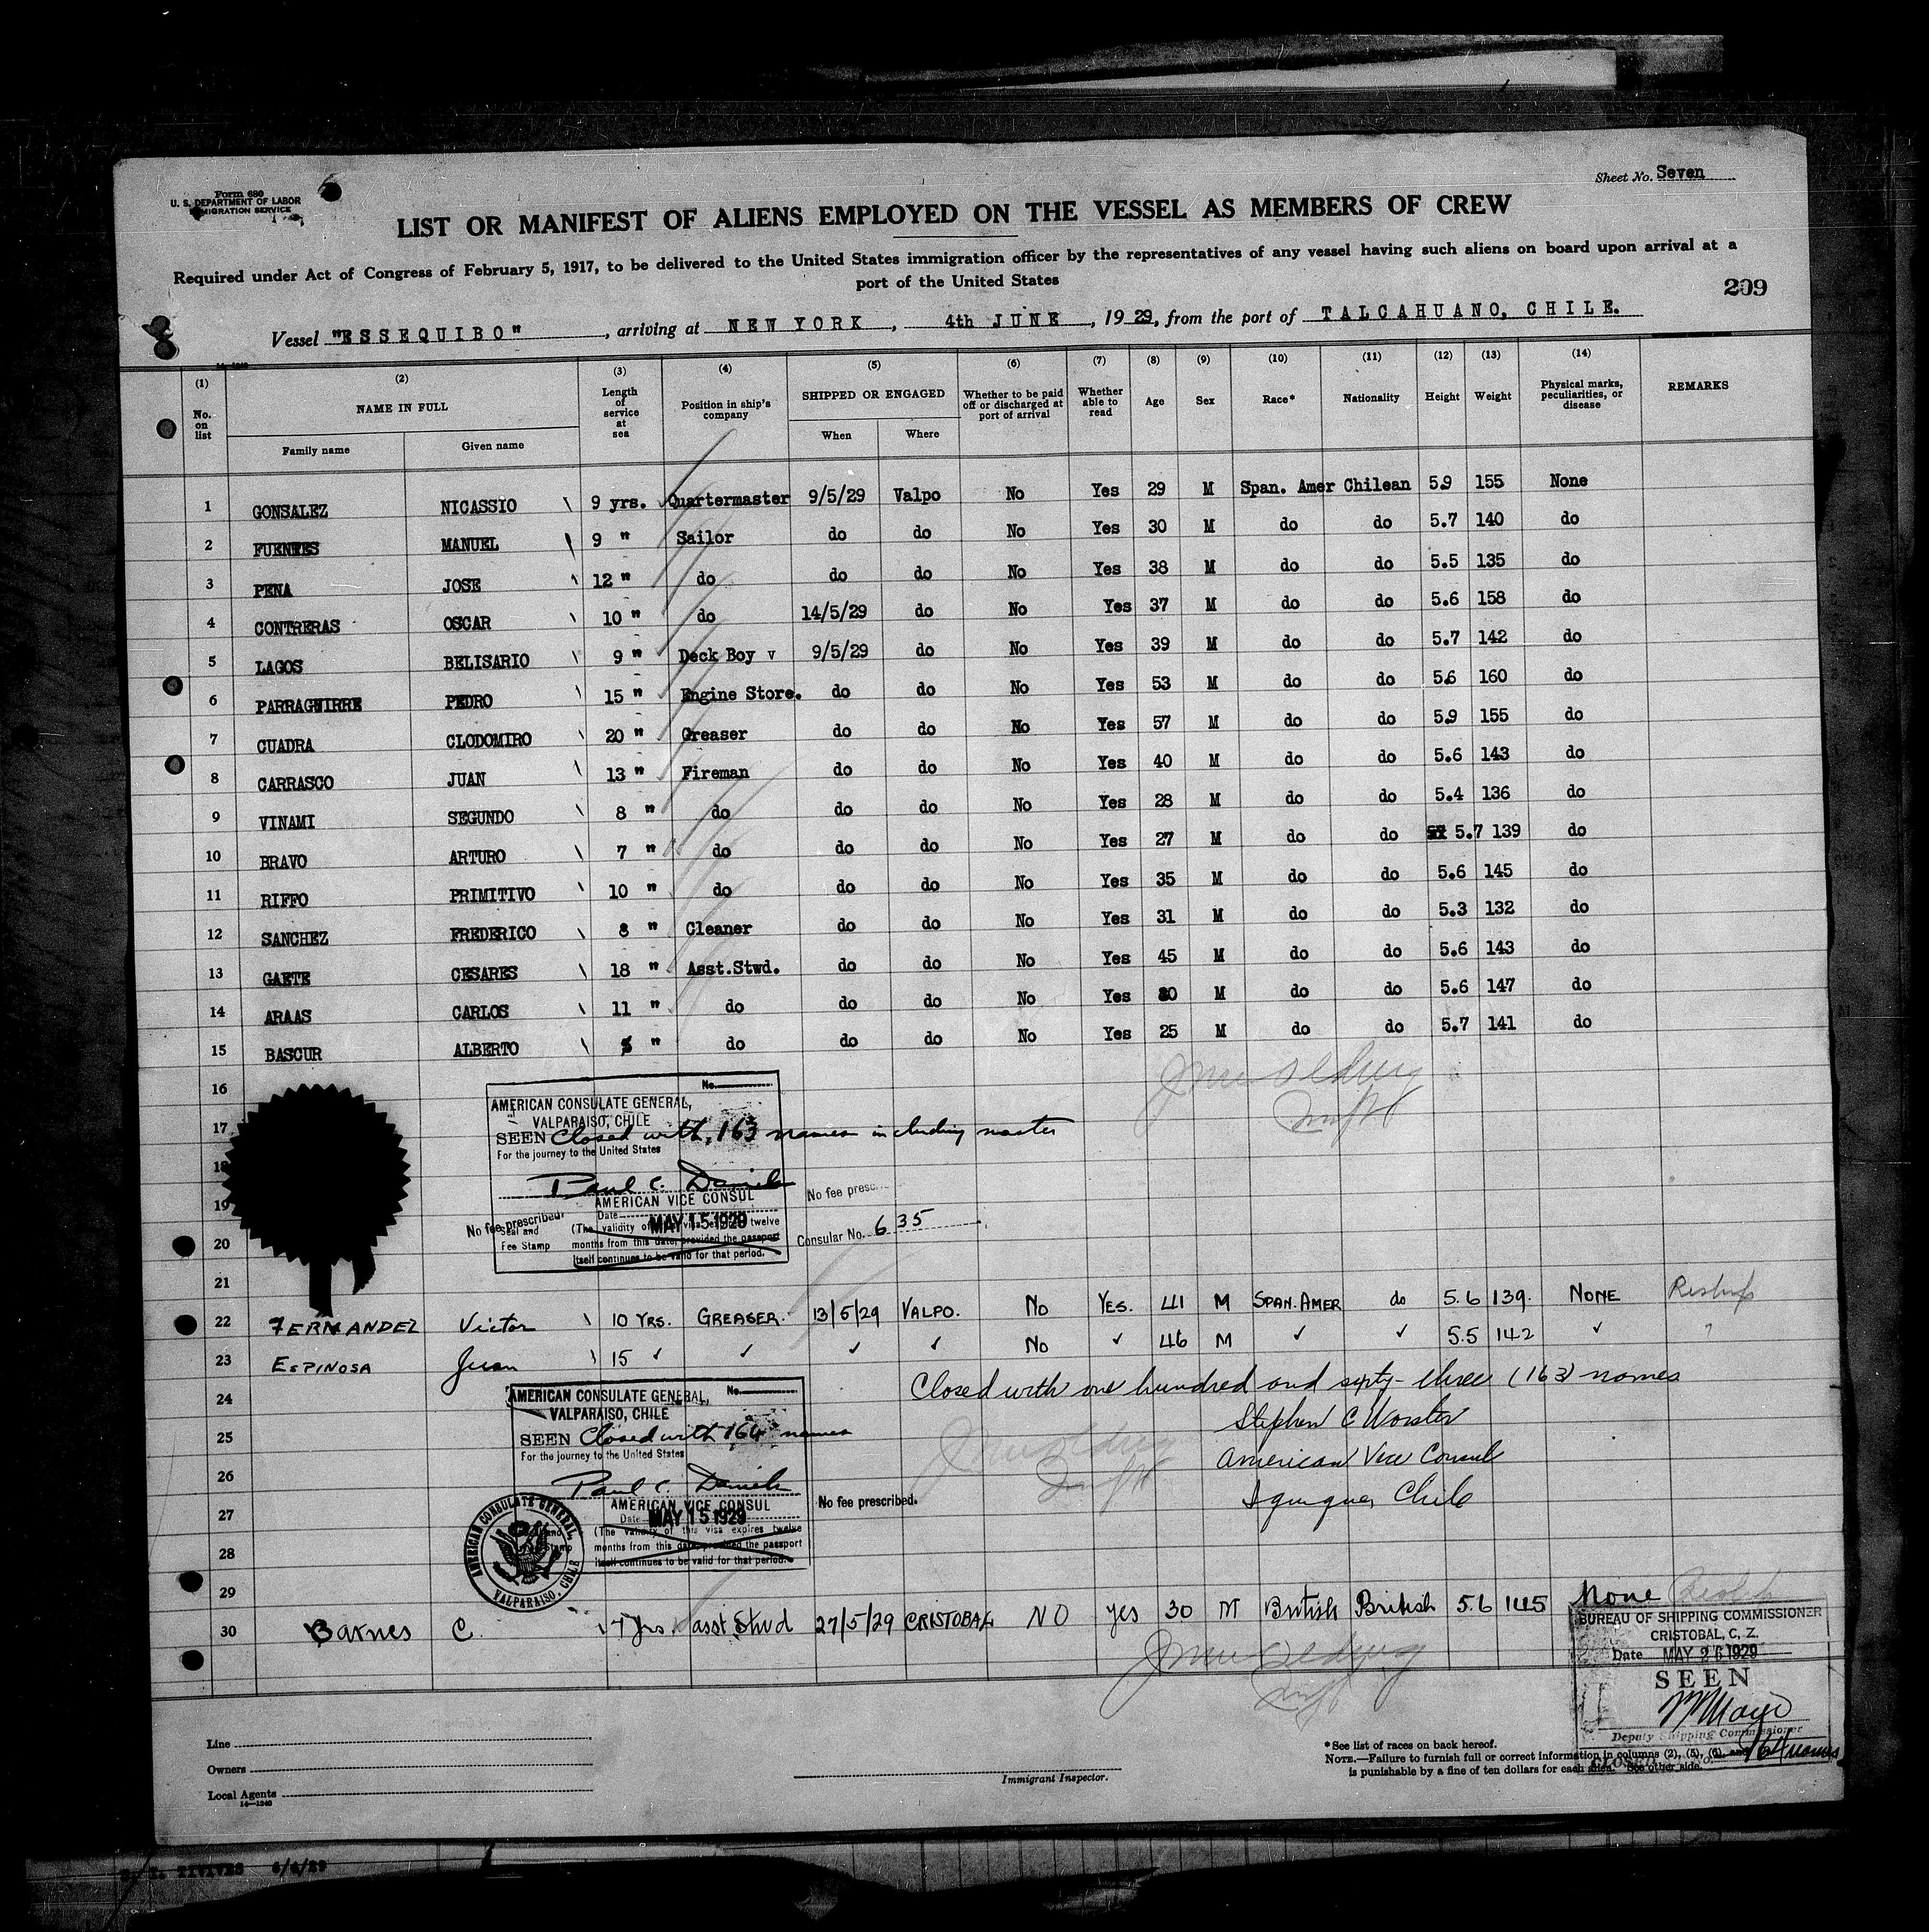 Form 680
U. S. DEPARTMENT OF LABOR
IMMIGRATION SERVICE
Sheet No. Seven
LIST OR MANIFEST OF ALIENS EMPLOYED ON THE VESSEL AS MEMBERS OF CREW
Required under Act of Congress of February 5, 1917, to be delivered to the United States immigration officer by the representatives of any vessel having such aliens on board upon arrival at a
port of the United States
209
Vessel "ESSEQUIBO", arriving at NEW YORK, 4th JUNE, 1929, from the port of TALCAHUANO, CHILE.
(1) (2) (3) (4) (5) (6) (7) (8) (9) (10) (11) (12) (13) (14)
No. on list NAME IN FULL Length of service at sea Position in ship's company SHIPPED OR ENGAGED Whether to be paid off or discharged at port of arrival Whether able to read Age Sex Race* Nationality Height Weight Physical marks, peculiarities, or disease REMARKS
Family name Given name When Where
1 GONSALEZ NICASSIO 9 yrs. Quartermaster 9/5/29 Valpo No Yes 29 M Span. Amer Chilean 5.9 155 None
2 FUENTES MANUEL 9 " Sailor do do No Yes 30 M do do 5.7 140 do
3 PENA JOSE 12 " do do do No Yes 38 M do do 5.5 135 do
4 CONTRERAS OSCAR 10 " do 14/5/29 do No Yes 37 M do do 5.6 158 do
5 LAGOS BELISARIO 9 " Deck Boy v 9/5/29 do No Yes 39 M do do 5.7 142 do
6 PARRAGUIRRE PEDRO 15 " Engine Store. do do No Yes 53 M do do 5.6 160 do
7 CUADRA CLODOMIRO 20 " Greaser do do No Yes 57 M do do 5.9 155 do
8 CARRASCO JUAN 13 " Fireman do do No Yes 40 M do do 5.6 143 do
9 VINAMI SEGUNDO 8 " do do do No Yes 28 M do do 5.4 136 do
10 BRAVO ARTURO 7 " do do do No Yes 27 M do do 5.7 139 do
11 RIFFO PRIMITIVO 10 " do do do No Yes 35 M do do 5.6 145 do
12 SANCHEZ FREDERICO 8 " Cleaner do do No Yes 31 M do do 5.3 132 do
13 GAETE CESARES 18 " Asst.Stwd. do do No Yes 45 M do do 5.6 143 do
14 ARAAS CARLOS 11 " do do do No Yes 30 M do do 5.6 147 do
15 BASCUR ALBERTO 5 " do do do No Yes 25 M do do 5.7 141 do
16
No.
AMERICAN CONSULATE GENERAL,
VALPARAISO, CHILE
17
SEEN Closed with, 163 names including master
For the journey to the United States
18
Paul C. Daniels
AMERICAN VICE CONSUL
No fee prescribed
19
Date MAY 15 1929
No fee prescribed.
Seal and
Fee Stamp
(The validity of this visa expires twelve
months from this date, provided the passport
itself continues to be valid for that period.
Consular No. 635
20
21
22 FERNANDEZ Victor 10 YRS. GREASER 13/5/29 VALPO. No YES. 41 M SPAN. AMER do 5.6 139. NONE
23 ESPINOSA Juan 15 ✓ ✓ ✓ ✓ No ✓ 46 M ✓ ✓ 5.5 142 ✓
24
Closed with one hundred and sixty-three (163) names
Stephen C Worster
American Vice Consul
Iquique, Chile
AMERICAN CONSULATE GENERAL,
No.
VALPARAISO, CHILE
25
SEEN Closed with 164 names
For the journey to the United States
26
Paul C. Daniels
AMERICAN VICE CONSUL
No fee prescribed.
27
Date MAY 15 1929
(The validity of this visa expires twelve
months from this date, provided the passport
itself continues to be valid for that period.
AMERICAN CONSULATE GENERAL,
VALPARAISO, CHILE
28
29
30 Barnes C. yrs. asst. Stwd 27/5/29 CRISTOBAL NO yes 30 M British British 5.6 145 None
BUREAU OF SHIPPING COMMISSIONER
CRISTOBAL, C. Z.
Date MAY 26 1929
SEEN
Deputy Shipping Commissioner
164 names
Line
Owners
Local Agents
14—1240
Immigrant Inspector.
*See list of races on back hereof.
NOTE.—Failure to furnish full or correct information in columns (2), (5), (6), and
is punishable by a fine of ten dollars for each alien. See other side.
TIVIVES 6/4/29